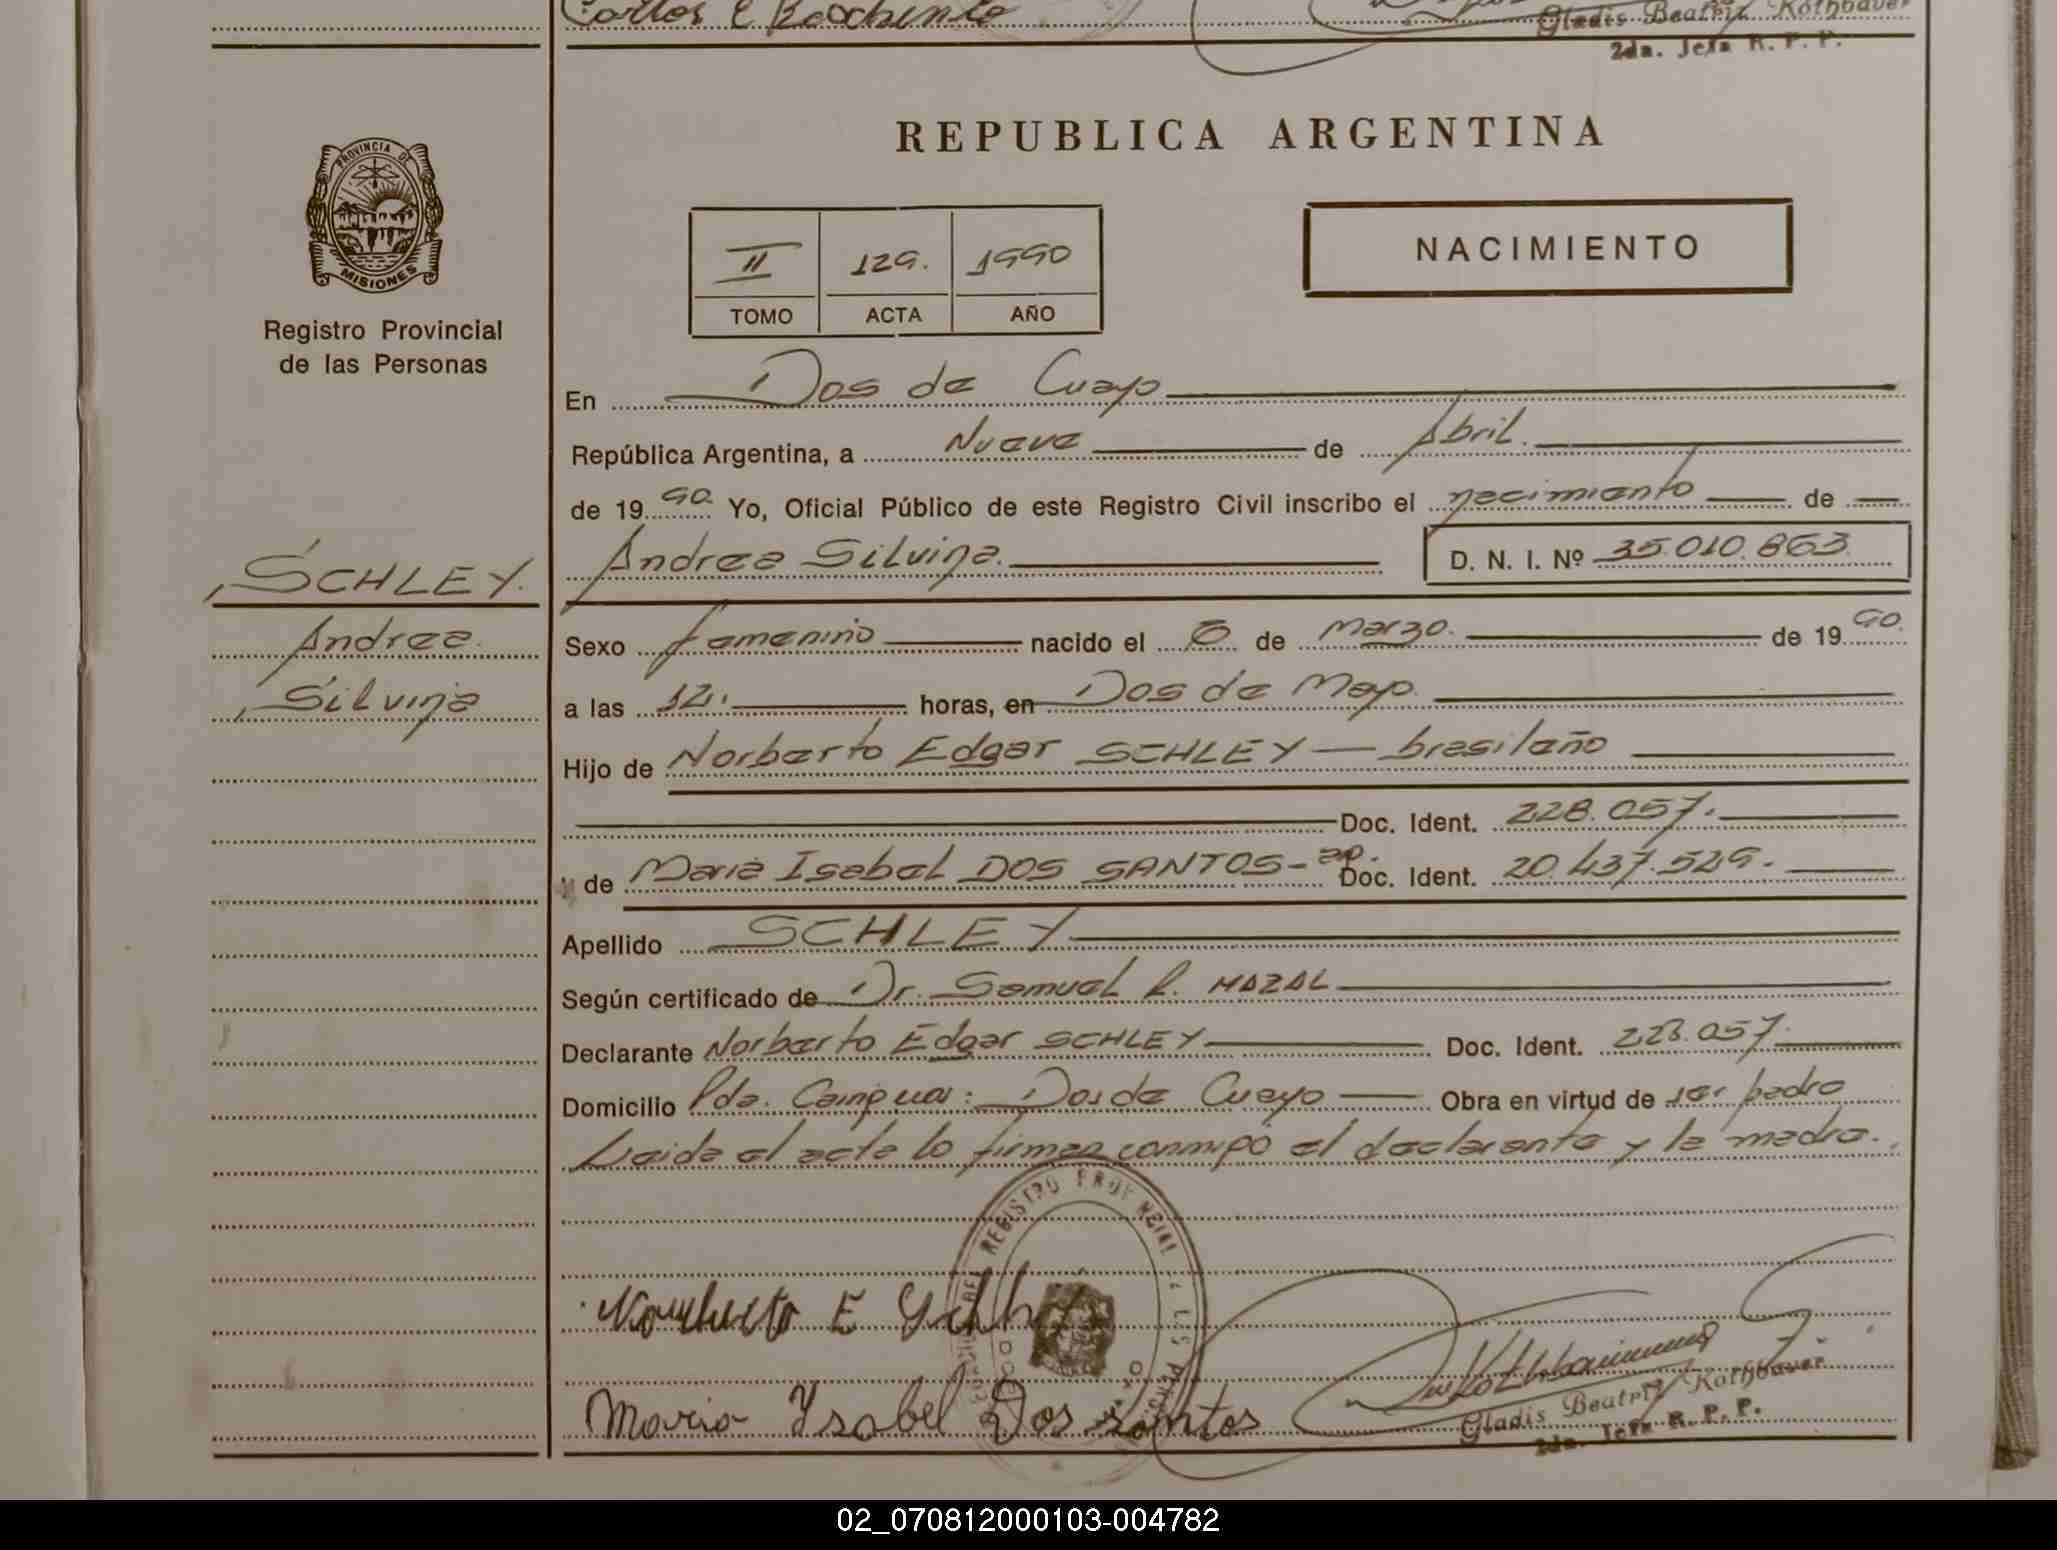 Carlos E
Gladis Beatriz Kothbauer
2da. Jefa R. P. P.
PROVINCIA DE
MISIONES
Registro Provincial
de las Personas
REPUBLICA ARGENTINA
II 129. 1990
TOMO ACTA AÑO
NACIMIENTO
En Dos de Cuayo
República Argentina, a Nueve de Abril.
de 19 90. Yo, Oficial Público de este Registro Civil inscribo el nacimiento de
SCHLEY.
Andrea
Silvina
Andrea Silvina. D. N. I. Nº 35.010.863
Sexo femenino nacido el de Marzo. de 19 90.
a las 12. horas, en Dos de Mayo.
Hijo de Norberto Edgar SCHLEY — brasilaño
Doc. Ident. 228.057.
y de Maria Isabel DOS SANTOS - ap. Doc. Ident. 20.437.529.
Apellido SCHLEY
Según certificado de Dr. Samuel R. MAZAL
Declarante Norberto Edgar SCHLEY Doc. Ident. 228.057.
Domicilio Pda. Campuas: Dos de Cuayo Obra en virtud de ser padre
Leida el acta lo firman conmigo el declarante y la madre.
REGISTRO PROVINCIAL DE LAS PERSONAS
Norberto E Schley
Maria Ysabel Dos santos
Gladis Beatriz Kothbauer
2da. Jefa R. P. P.
02_070812000103-004782